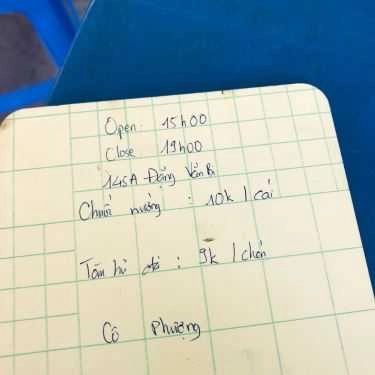 Open: 15h00
Close 19h00
145A Đặng Văn Bi
Chuối nướng : 10k / cái
Tàu hủ đá : 9k / chén
Cô Phượng